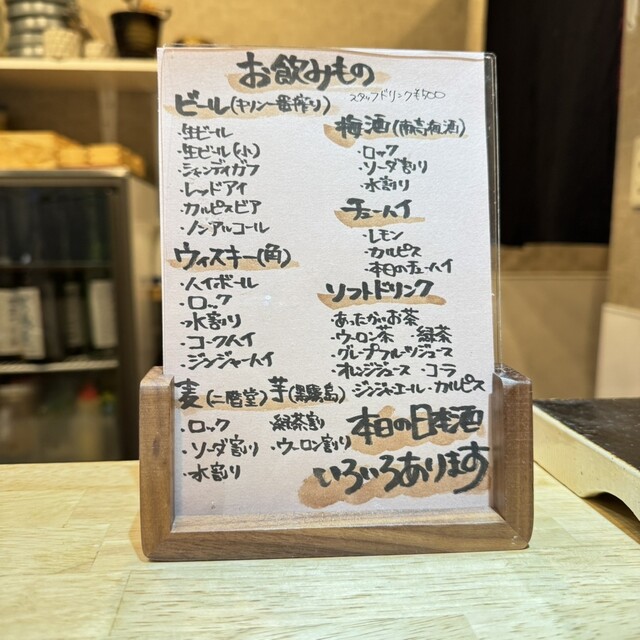 お飲みもの
スタッフドリンク¥500
ビール(キリン一番搾り)
・生ビール
・生ビール(小)
・シャンディガフ
・レッドアイ
・カルピスビア
・ノンアルコール
ウィスキー(角)
・ハイボール
・ロック
・水割り
・コークハイ
・ジンジャーハイ
麦(二階堂)芋(黒霧島)
・ロック 緑茶割り
・ソーダ割り ・ウーロン割り
・水割り
梅酒(南高梅酒)
・ロック
・ソーダ割り
・水割り
チューハイ
・レモン
・カルピス
・本日のチューハイ
ソフトドリンク
あったかいお茶
・ウーロン茶 緑茶
・グレープフルーツジュース
・オレンジジュース・コーラ
・ジンジャエール・カルピス
本日の日本酒
いろいろあります